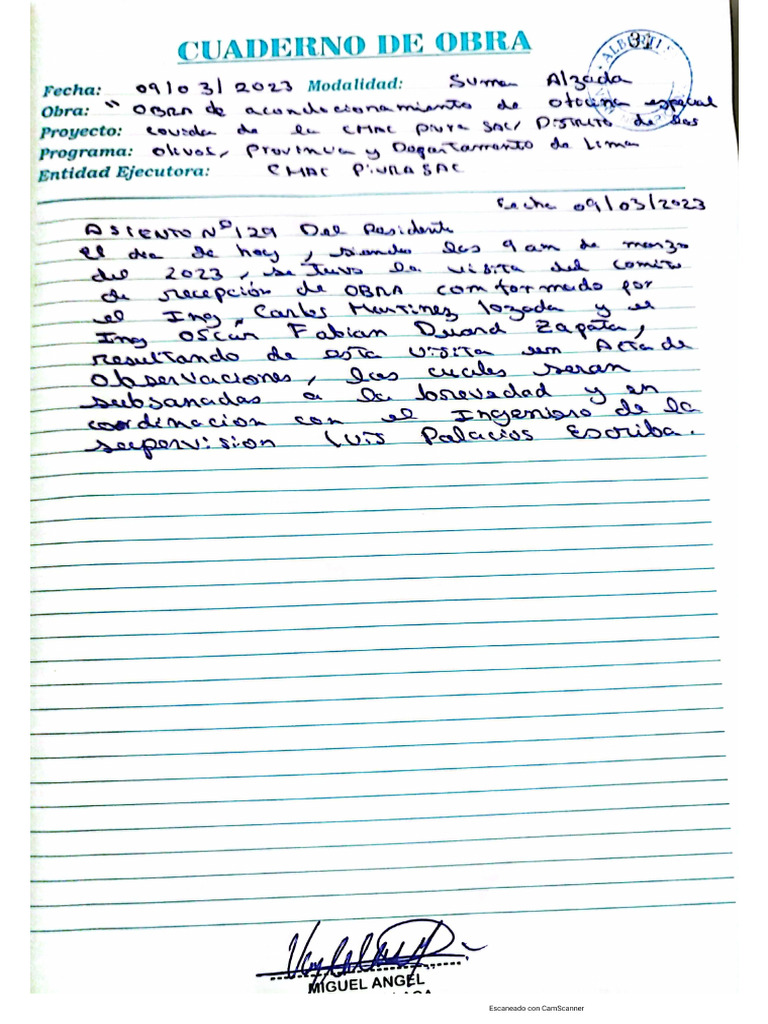 CUADERNO DE OBRA
ALBE
34
Fecha: 09/03/2023 Modalidad: Suma Alzada
Obra: "OBRA de acondicionamiento de oficina especial
Proyecto: Covida de la CMAC PIURA SAC/ DISTRITO de los
Programa: Olivos, Provincia y Departamento de Lima
Entidad Ejecutora: CMAC PIURA SAC
Fecha 09/03/2023
ASIENTO Nº 129 Del Residente
el dia de hoy, siendo las 9 am de marzo
del 2023, se tuvo la visita del comite
de recepción de OBRA comformado por
el Ing, Carlos Martinez lozada y el
Ing OSCAR Fabian Duand Zapata,
resultando de esta visita un Acta de
Observaciones, las cuales seran
subsanadas a la brevedad y en
coordinacion con el Ingeniero de la
supervision LUIS Palacios Escriba.
MIGUEL ANGEL
Escaneado con CamScanner